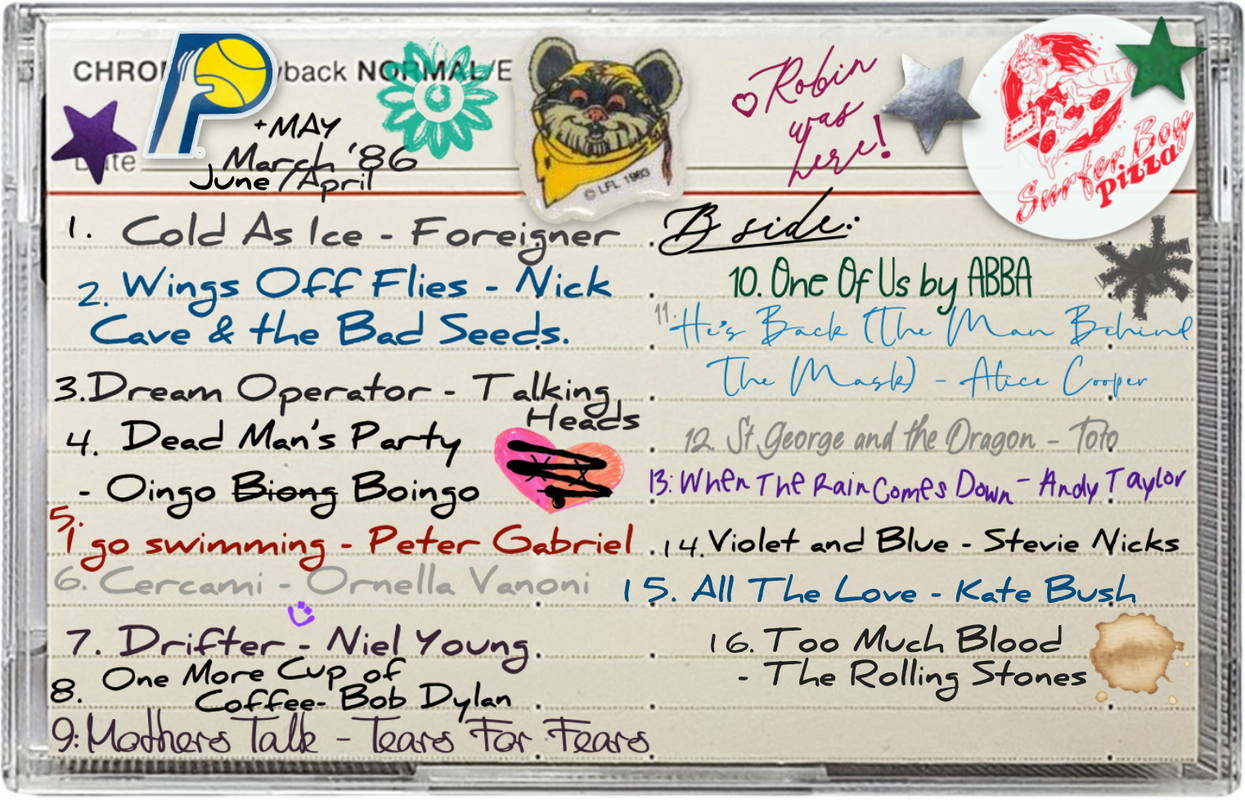 CHRO yback NORMAL/E
Date
+MAY
March '86
June / April
© LFL 1983
Robin
was
here!
Surfer Boy
Pizza
1. Cold As Ice - Foreigner
2. Wings Off Flies - Nick
Cave & the Bad Seeds.
3. Dream Operator - Talking
Heads
4. Dead Man's Party
- Oingo Biong Boingo
5. I go swimming - Peter Gabriel
6. Cercami - Ornella Vanoni
7. Drifter - Niel Young
8. One More Cup of
Coffee- Bob Dylan
9: Mothers Talk - Tears For Fears
B side:
10. One Of Us by ABBA
11. He's Back (The Man Behind
The Mask) - Alice Cooper
12. St. George and the Dragon - Toto
13: When The Rain Comes Down - Andy Taylor
14. Violet and Blue - Stevie Nicks
15. All The Love - Kate Bush
16. Too Much Blood
- The Rolling Stones